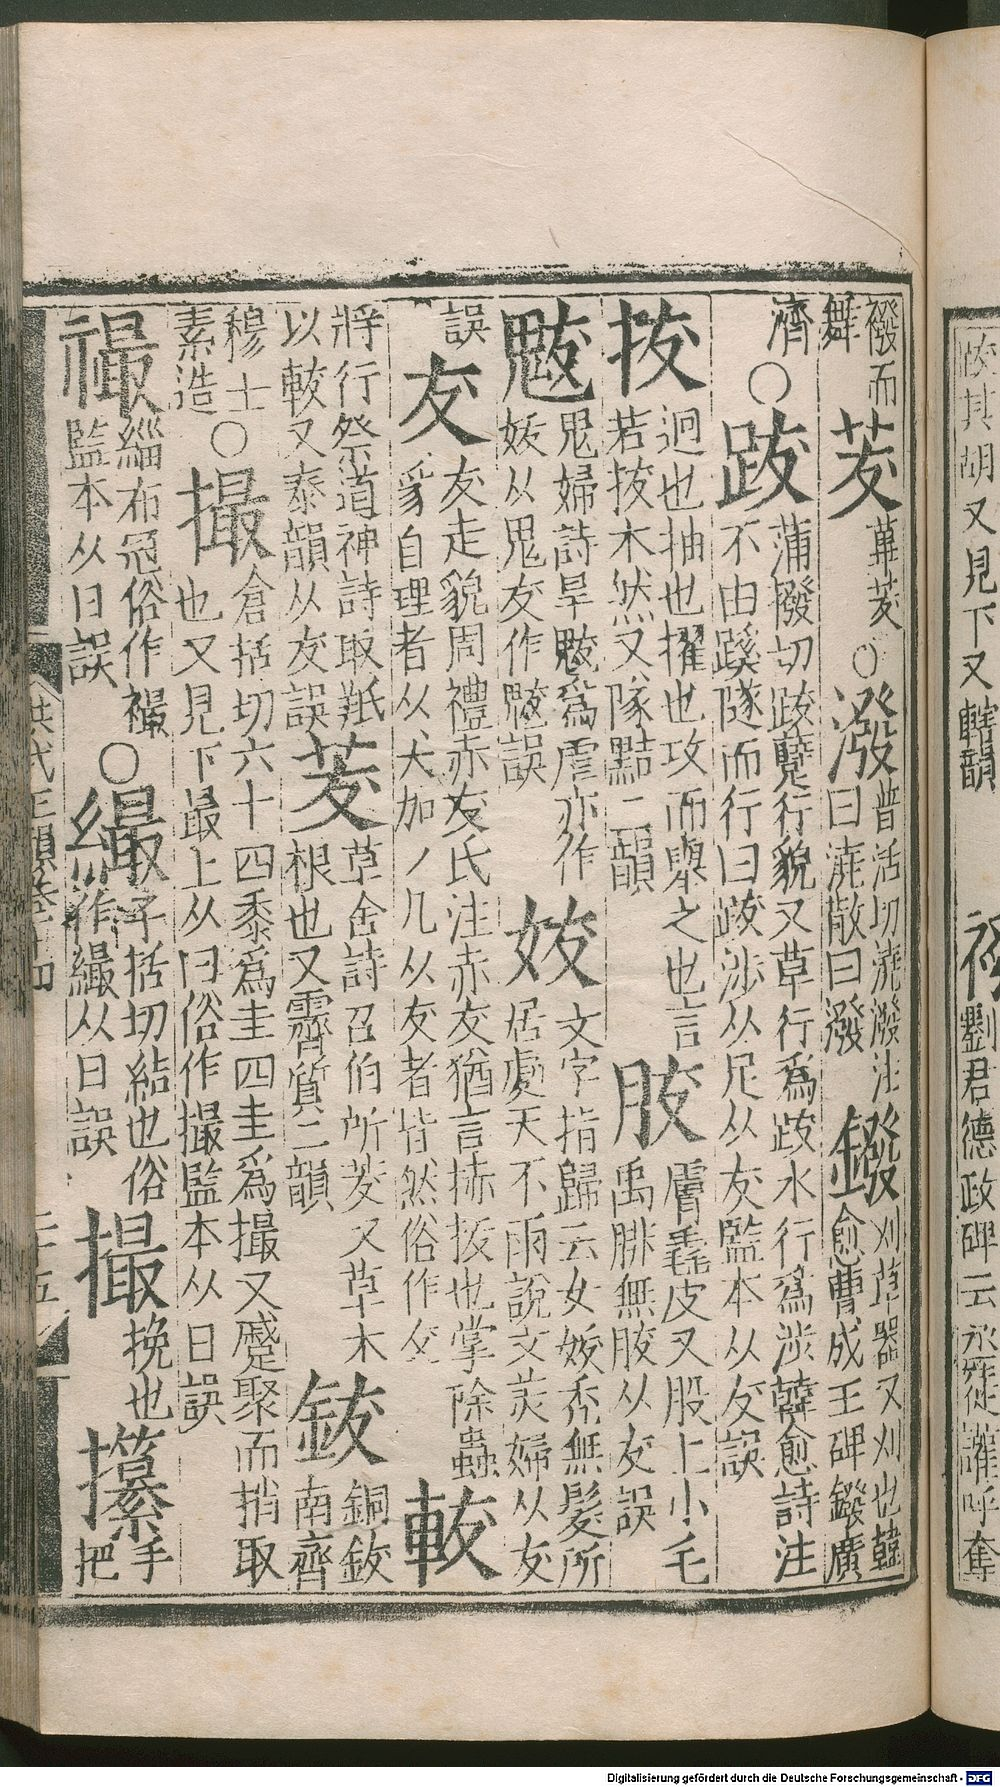 襏而舞茇蓽茇〇潑普活切㵯潑注曰㵯散曰潑鏺刈草器又刈也韓愈曹成王碑鏺廣
濟〇跋蒲撥切跋躠行貌又草行爲跋水行爲涉韓愈詩注不由蹊隧而行曰跋涉从足从犮監本从友誤
拔迴也抽也擢也攻而舉之也言若拔木然又隊黠二韻胈膚毳皮又股上小毛禹腓無胈从犮誤
魃鬼婦詩旱魃爲虐亦作妭从鬼犮作魃誤妭文字指歸云女妭禿無髮所居處天不雨說文美婦从犮
誤犮犮走貌周禮赤犮氏注赤犮猶言捇拔也掌除蟲豸自理者从犬加丿凡从犮者皆然俗作犮軷
將行祭道神詩取羝以軷又泰韻从友誤茇草舍詩召伯所茇又草木根也又霽質二韻鈸銅鈸南齊
穆士素造〇撮倉括切六十四黍爲圭四圭爲撮又蹙聚而捎取也又見下最上从冃俗作撮監本从日誤
襊緇布冠俗作襊監本从日誤〇繓子括切結也俗作繓从日誤撮挽也攥手把
洪武正韻卷十四 二十五
皮其胡又見下又轄韻
劉君德政碑云丞徒讙呼奪
Digitalisierung gefördert durch die Deutsche Forschungsgemeinschaft - DFG